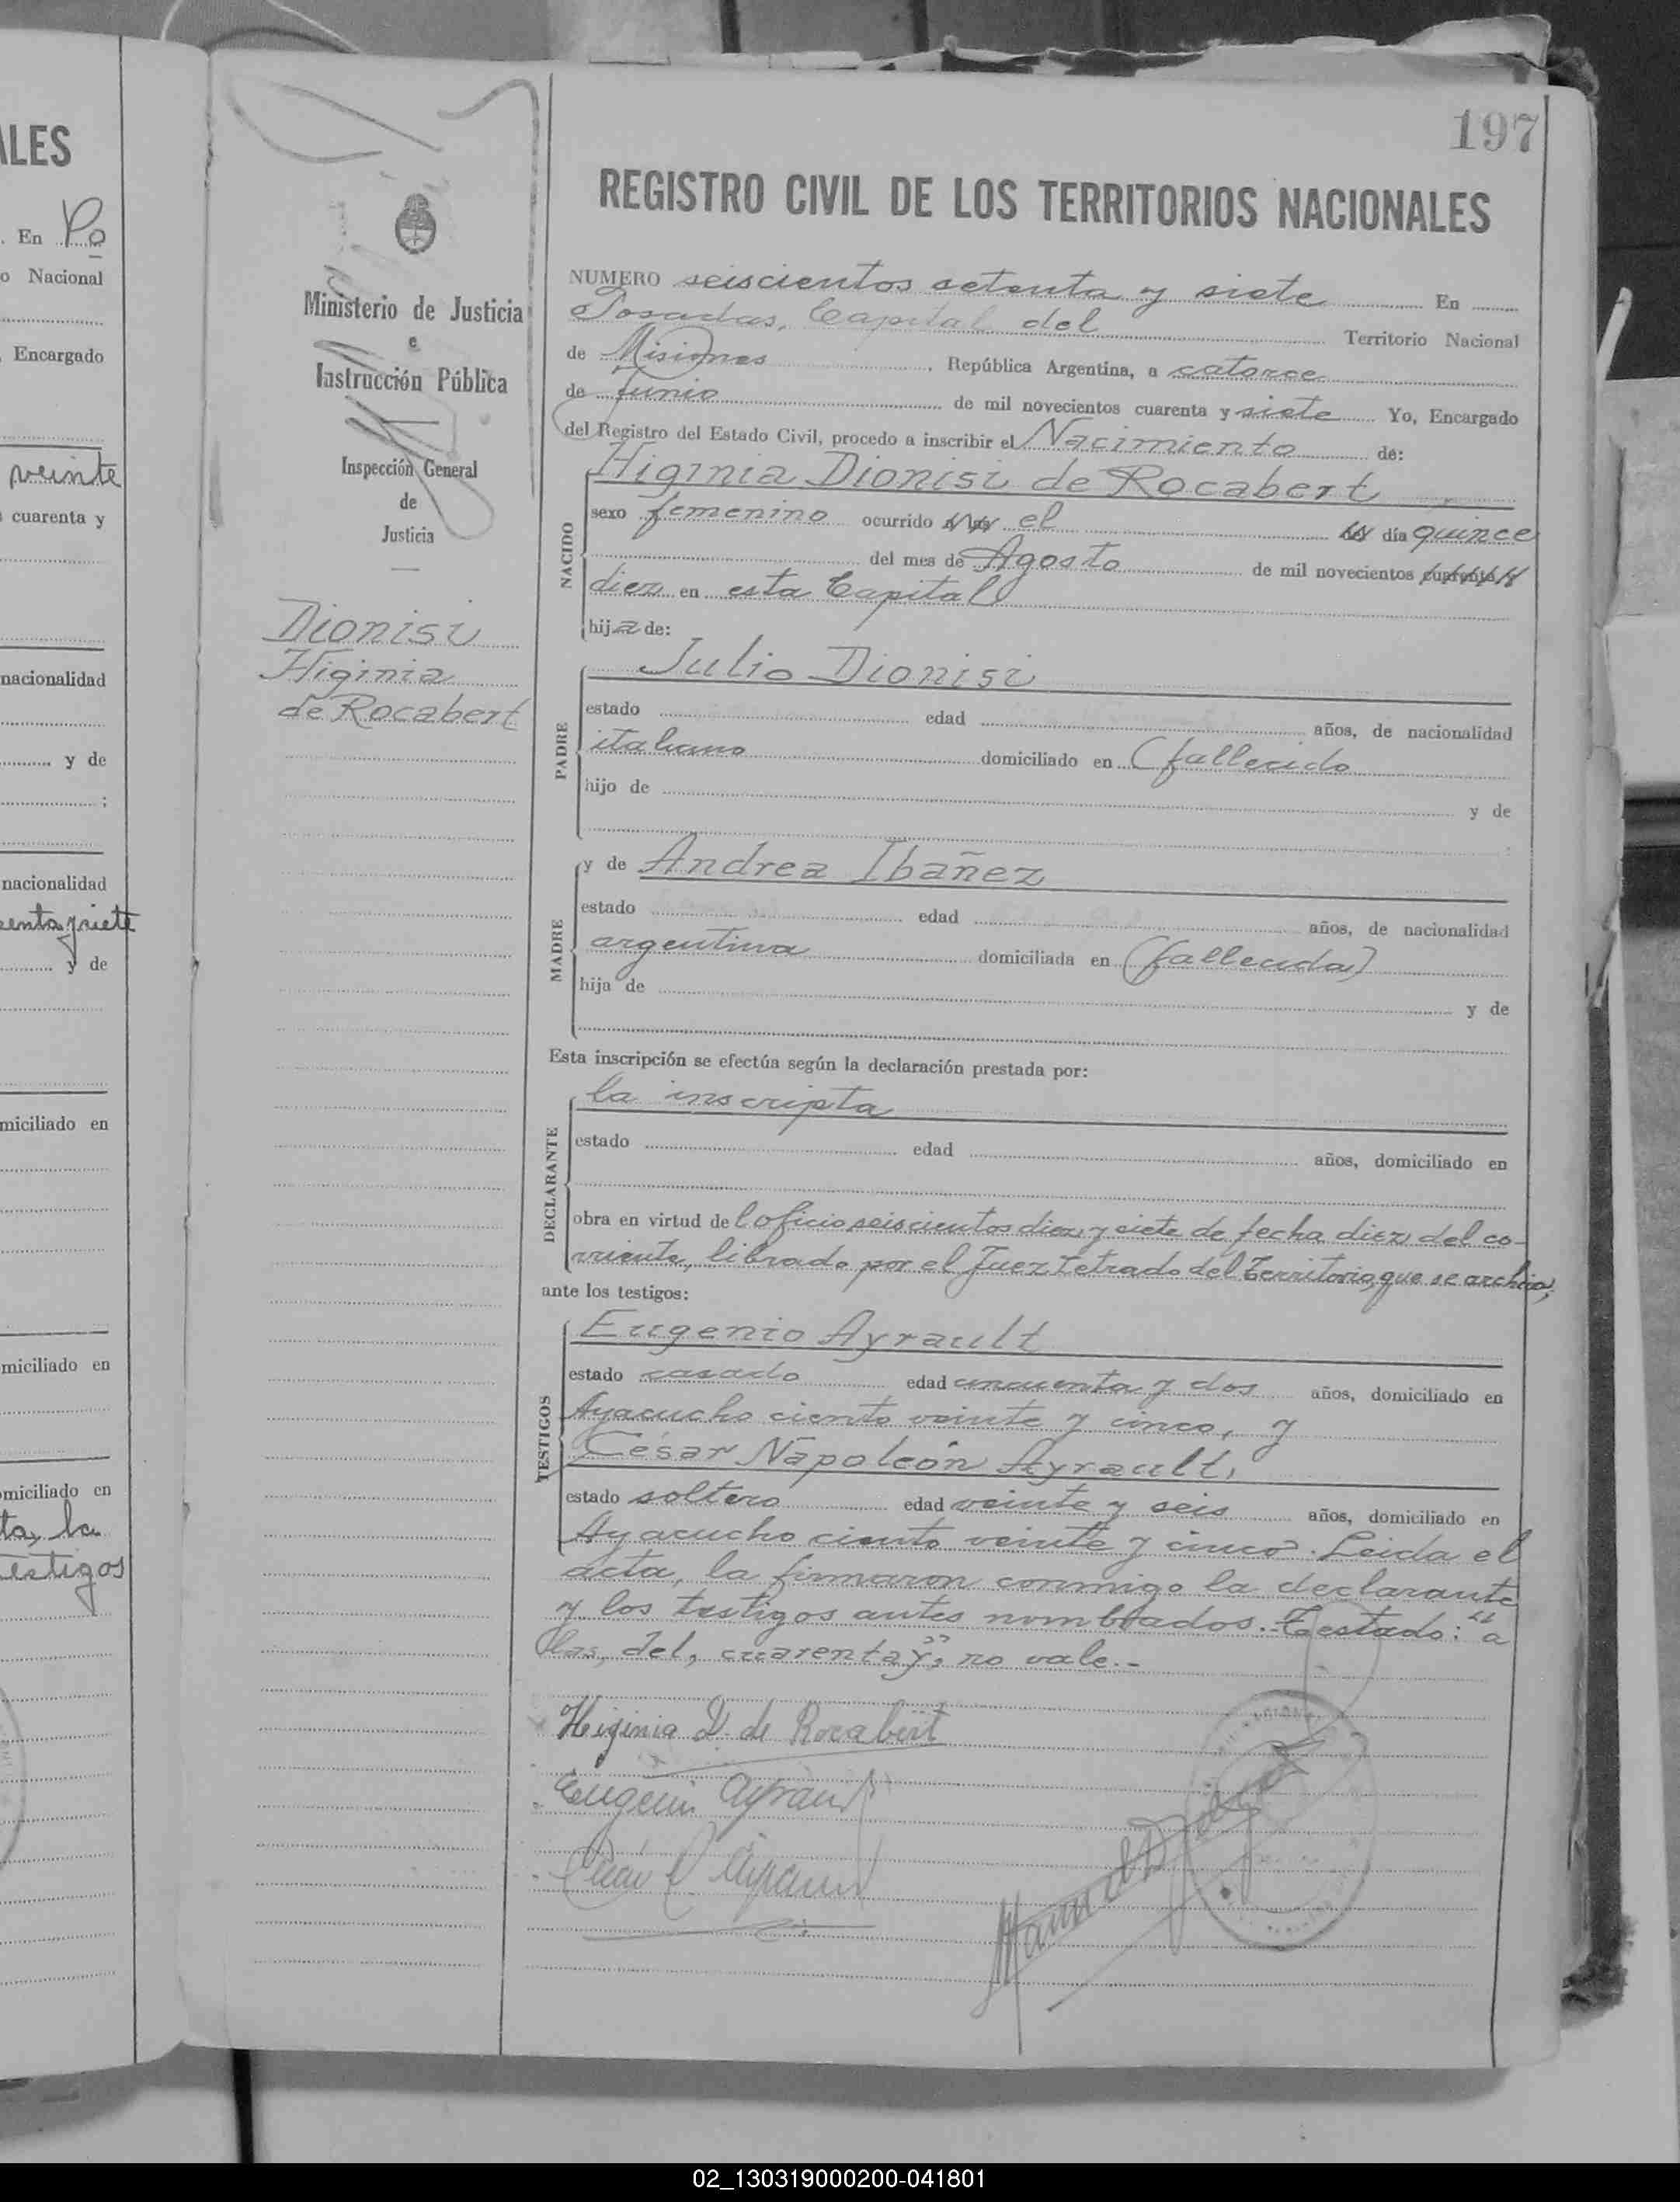 ALES
. En Po
o Nacional
, Encargado
veinte
cuarenta y
nacionalidad
y de
;
nacionalidad
enta y siete
y de
miciliado en
miciliado en
omiciliado en
ta, la
testigos
Ministerio de Justicia
e
Instrucción Pública
Inspección General
de
Justicia
Dionisi
Higinia
de Rocabert
197
REGISTRO CIVIL DE LOS TERRITORIOS NACIONALES
NUMERO seiscientos setenta y siete En
Posadas, Capital del Territorio Nacional
de Misiones, República Argentina, a catorce
de Junio de mil novecientos cuarenta y siete Yo, Encargado
del Registro del Estado Civil, procedo a inscribir el Nacimiento de:
NACIDO
Higinia Dionisi de Rocabert
sexo femenino ocurrido a las el del día quince
del mes de Agosto de mil novecientos cuarenta y
diez en esta Capital
hija de:
PADRE
Julio Dionisi
estado edad años, de nacionalidad
italiano domiciliado en (fallecido
hijo de y de
MADRE
y de Andrea Ibañez
estado edad años, de nacionalidad
argentina domiciliada en (fallecida)
hija de y de
Esta inscripción se efectúa según la declaración prestada por:
DECLARANTE
la inscripta
estado edad años, domiciliado en
obra en virtud del oficio seiscientos diez y siete de fecha diez del co-
rriente, librado por el Juez Letrado del Territorio, que se archiva;
ante los testigos:
TESTIGOS
Eugenio Ayrault
estado casado edad cincuenta y dos años, domiciliado en
Ayacucho ciento veinte y cinco, y
César Napoleón Ayrault,
estado soltero edad veinte y seis años, domiciliado en
Ayacucho ciento veinte y cinco. Leida el
acta, la firmaron conmigo la declarante
y los testigos antes nombrados.-Testado: "a
las, del, cuarenta y", no vale.-
Higinia D. de Rocabert
Eugenio Ayrault
02_130319000200-041801